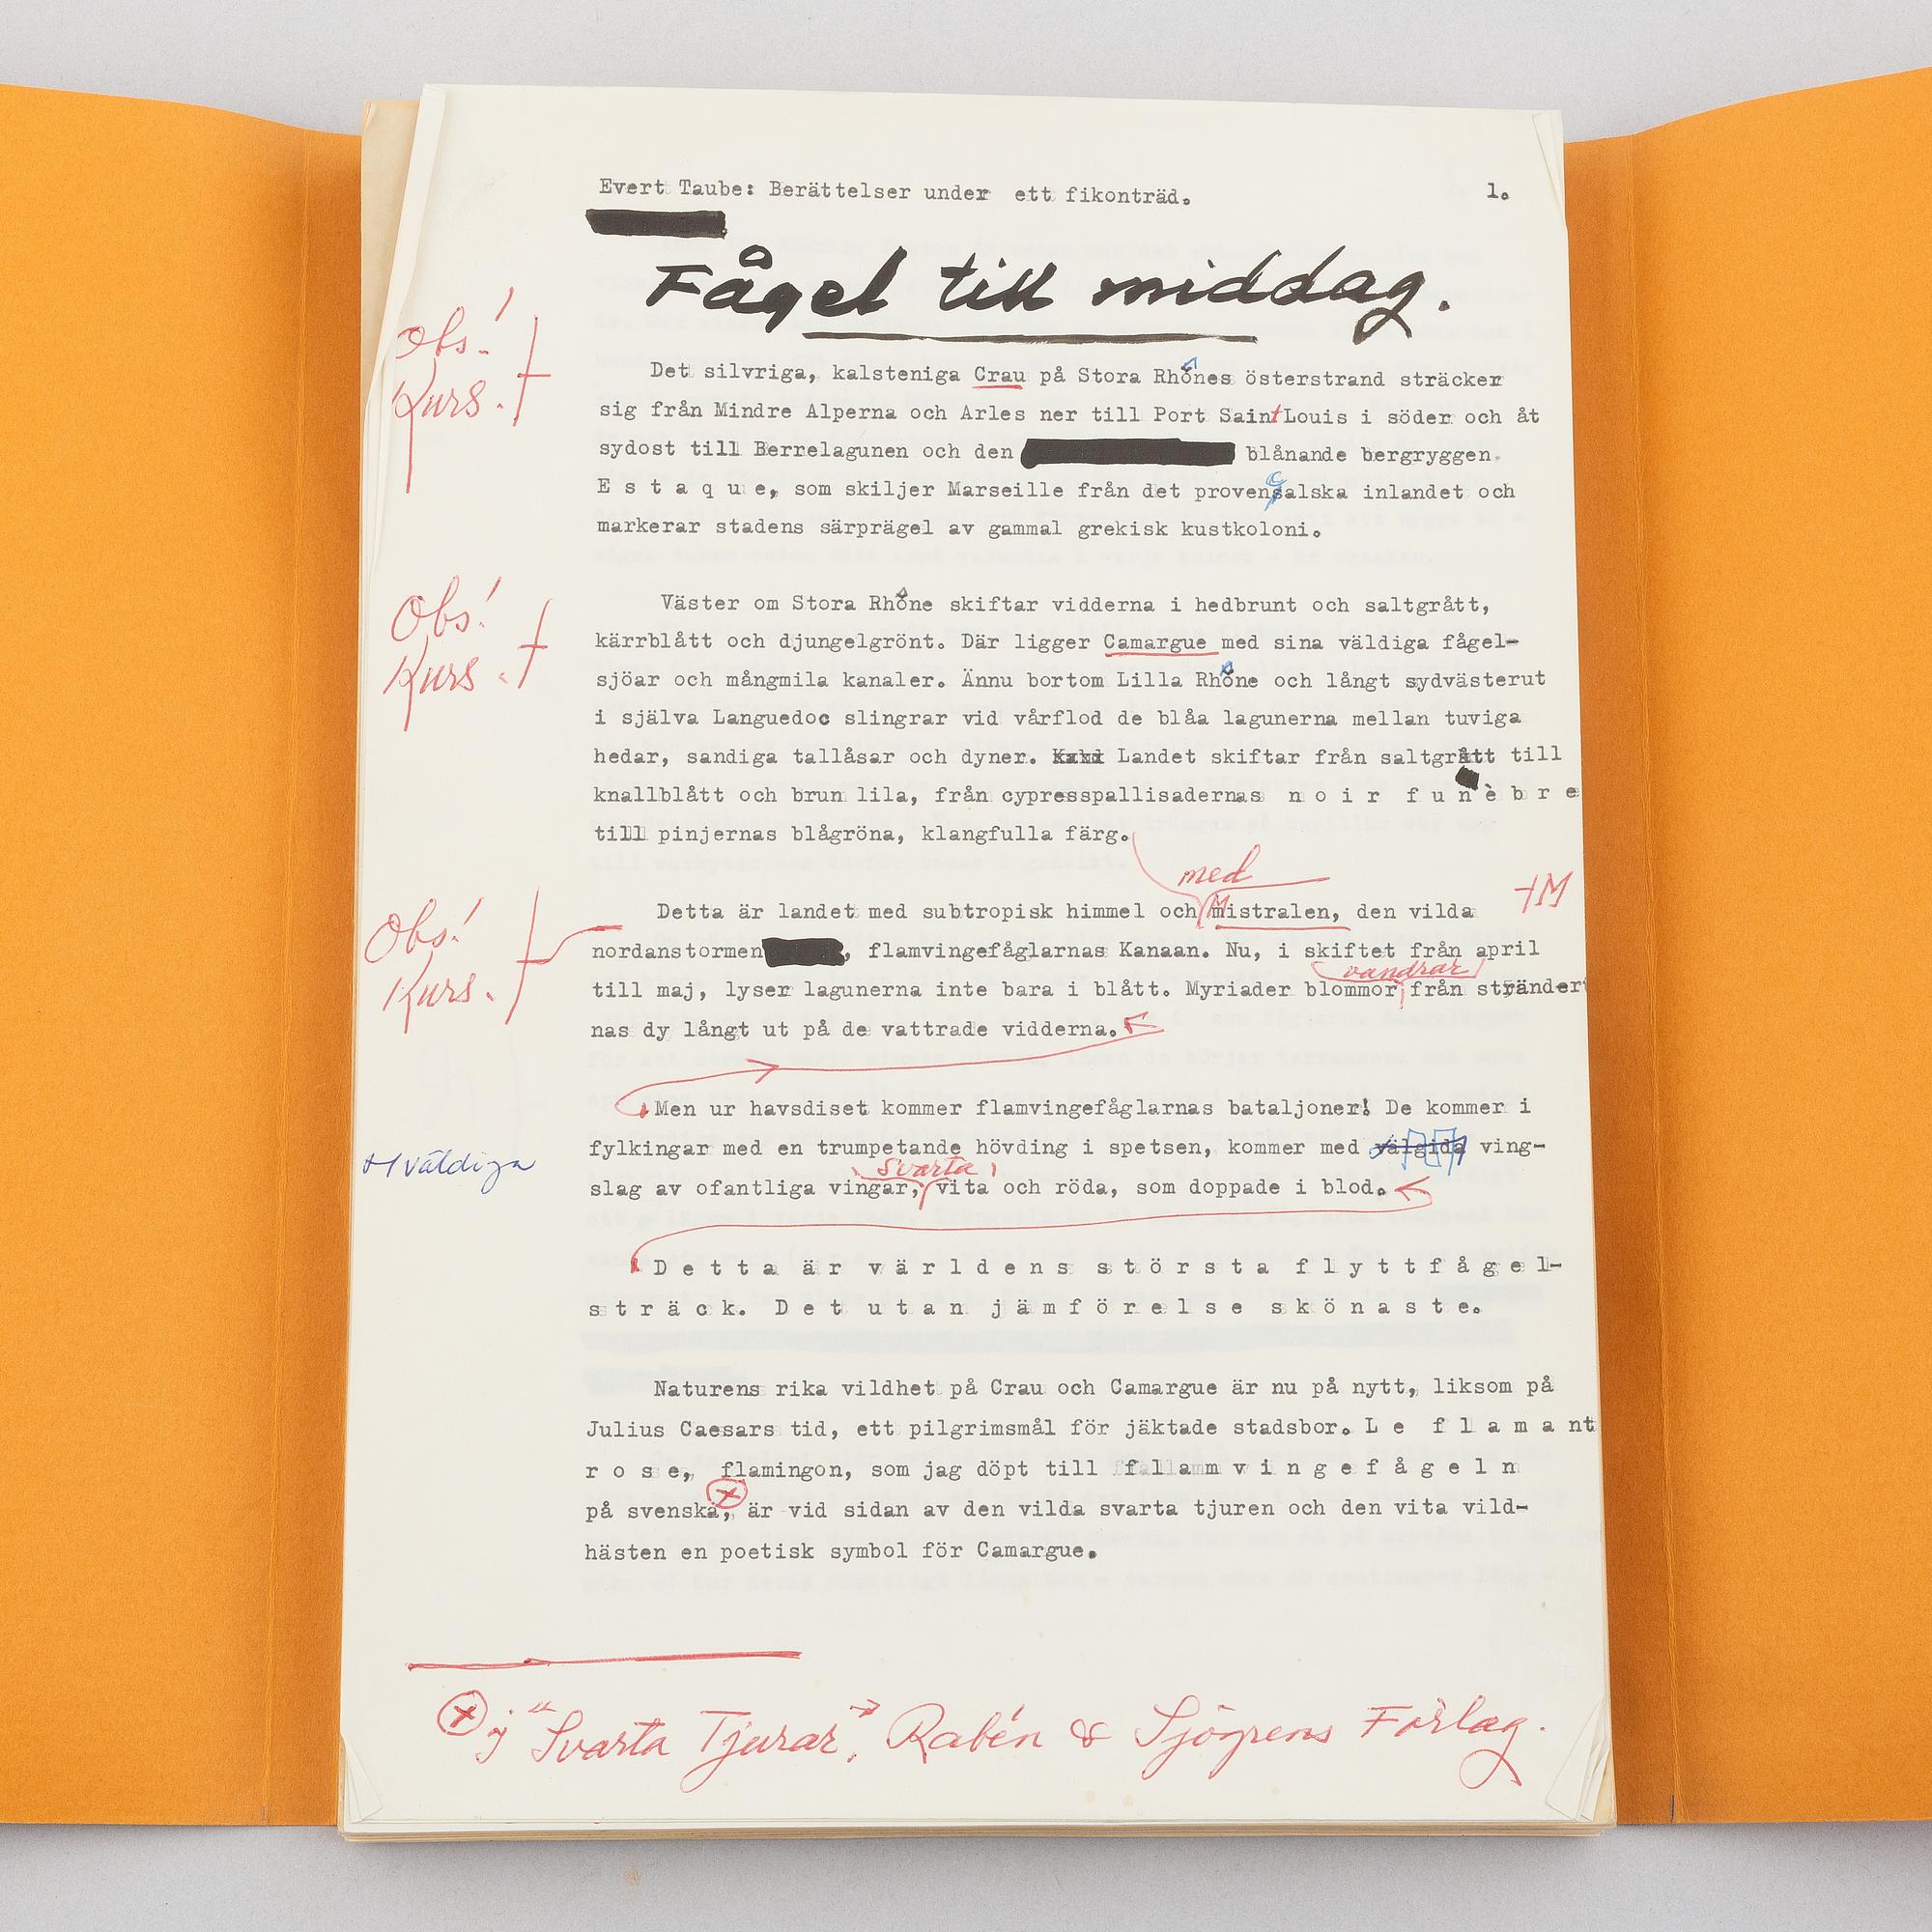 Evert Taube: Berättelser under ett fikonträd. 1.
Fågel till middag.
Obs!
Kurs.
Det silvriga, kalsteniga Crau på Stora Rhônes österstrand sträcker
sig från Mindre Alperna och Arles ner till Port Saint Louis i söder och åt
sydost till Berrelagunen och den blånande bergryggen
E s t a q u e, som skiljer Marseille från det provençalska inlandet och
markerar stadens särprägel av gammal grekisk kustkoloni.
Obs!
Kurs.
Väster om Stora Rhône skiftar vidderna i hedbrunt och saltgrått,
kärrblått och djungelgrönt. Där ligger Camargue med sina väldiga fågel-
sjöar och mångmila kanaler. Ännu bortom Lilla Rhône och långt sydvästerut
i själva Languedoc slingrar vid vårflod de blåa lagunerna mellan tuviga
hedar, sandiga tallåsar och dyner. Landet skiftar från saltgrått till
knallblått och brun lila, från cypresspallisadernas n o i r f u n è b r e
till pinjernas blågröna, klangfulla färg.
med
Detta är landet med subtropisk himmel och Mistralen, den vilda
M
Obs!
Kurs.
nordanstormen , flamvingefåglarnas Kanaan. Nu, i skiftet från april
vandrar
till maj, lyser lagunerna inte bara i blått. Myriader blommor från stränder
nas dy långt ut på de vattrade vidderna.
Men ur havsdiset kommer flamvingefåglarnas bataljoner! De kommer i
fylkingar med en trumpetande hövding i spetsen, kommer med välgida ving-
väldiga
svarta,
slag av ofantliga vingar, vita och röda, som doppade i blod.
D e t t a ä r v ä r l d e n s s t ö r s t a f l y t t f å g e l-
s t r ä c k. D e t u t a n j ä m f ö r e l s e s k ö n a s t e.
Naturens rika vildhet på Crau och Camargue är nu på nytt, liksom på
Julius Caesars tid, ett pilgrimsmål för jäktade stadsbor. L e f l a m a n t
r o s e, flamingon, som jag döpt till f l a m v i n g e f å g e l n
på svenska, är vid sidan av den vilda svarta tjuren och den vita vild-
hästen en poetisk symbol för Camargue.
i "Svarta Tjurar", Rabén & Sjögrens Förlag.